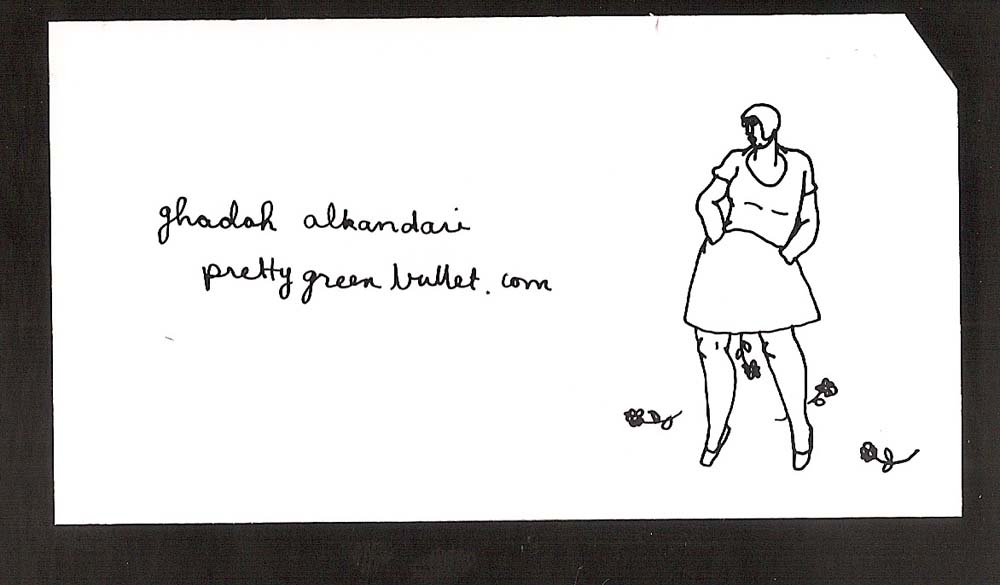 ghadah alkandari
prettygreenbullet.com